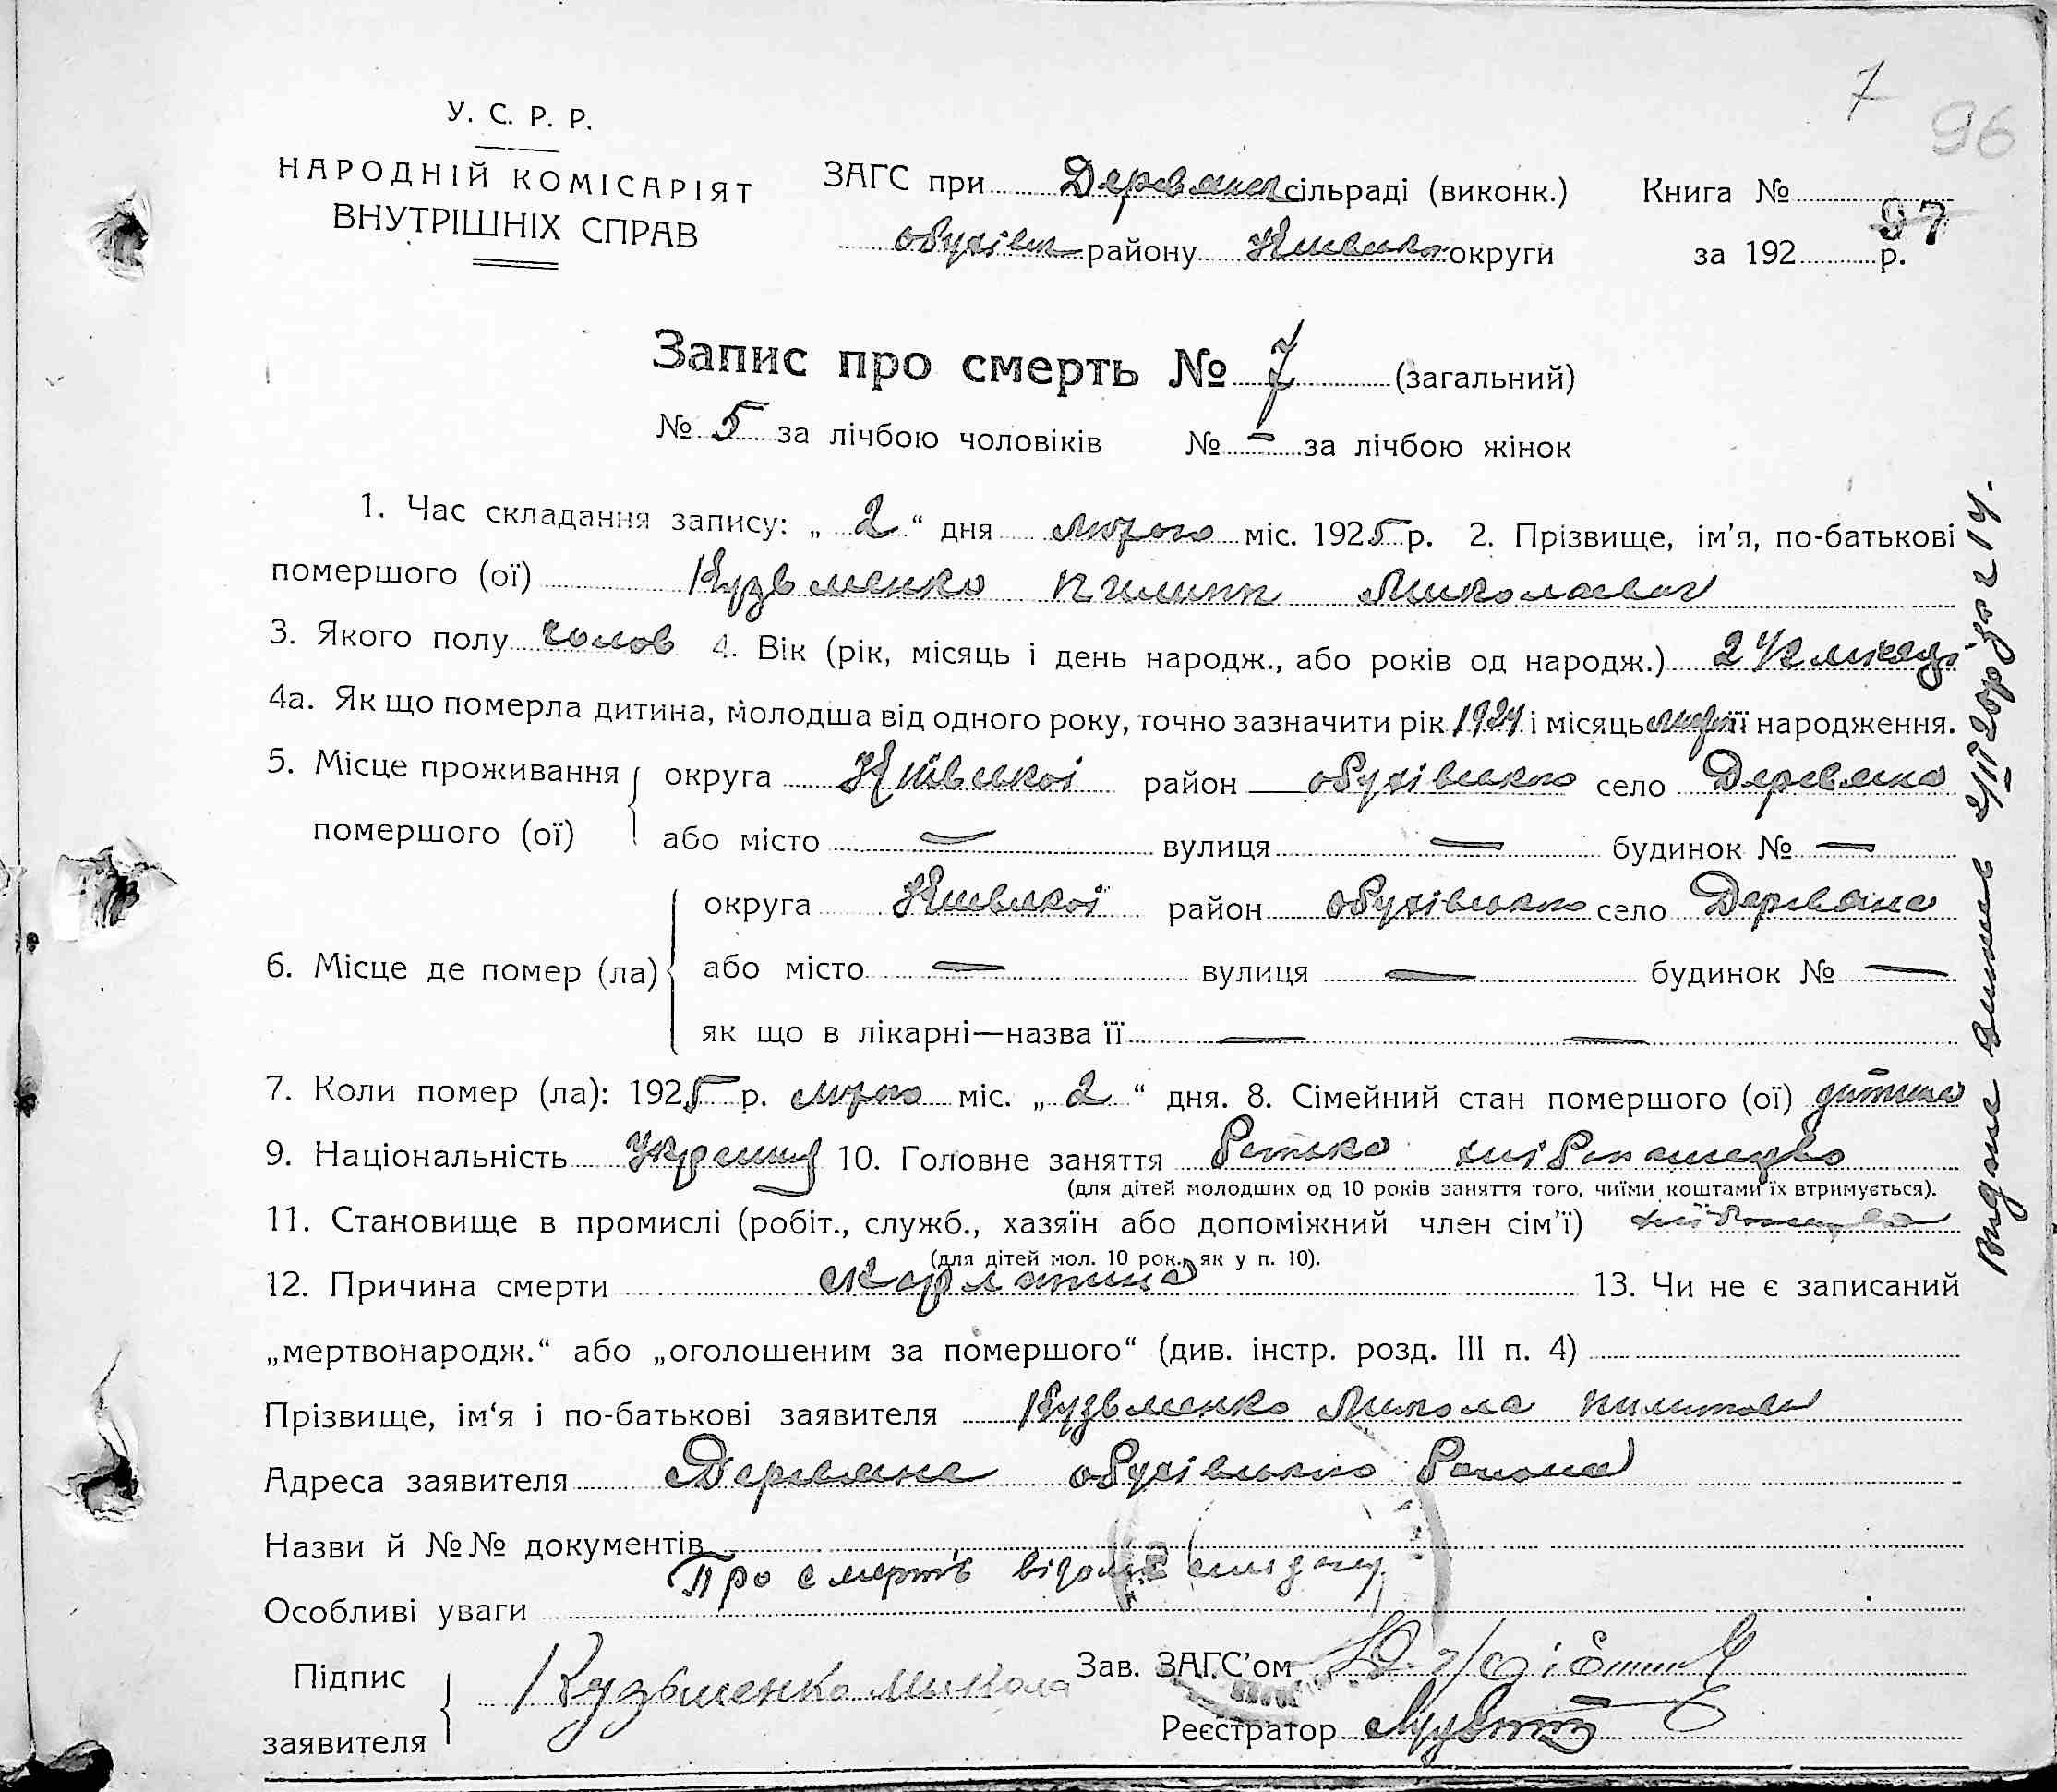 7
96
У. С. Р. Р.
НАРОДНІЙ КОМІСАРІЯТ
ВНУТРІШНІХ СПРАВ
ЗАГС при Деревянск сільраді (виконк.) Книга №
97
обухівск району Київсько округи за 192 р.
Запис про смерть № 7 (загальний)
№ 5 за лічбою чоловіків № – за лічбою жінок
1. Час складання запису: „ 2 “ дня лютого міс. 1925 р. 2. Прізвище, ім’я, по-батькові
помершого (ої) Кузьменко Пилип Миколаевич
3. Якого полу чолов 4. Вік (рік, місяць і день народж., або років од народж.) 2 1/2 місяці
4а. Як що померла дитина, молодша від одного року, точно зазначити рік 1924 і місяць її народження.
5. Місце проживання округа Київської район обухівсько село Деревяна
помершого (ої) або місто — вулиця — будинок № —
округа Київської район обухівсько село Деревяна
6. Місце де помер (ла) або місто — вулиця — будинок № —
як що в лікарні—назва її — —
7. Коли помер (ла): 1925 р. лютого міс. „ 2 “ дня. 8. Сімейний стан помершого (ої) дитина
9. Національність 10. Головне заняття Батько хліборобство
(для дітей молодших од 10 років заняття того, чиїми коштами їх втримується).
11. Становище в промислі (робіт., служб., хазяїн або допоміжний член сім’ї)
(для дітей мол. 10 рок., як у п. 10).
12. Причина смерти скарлатина 13. Чи не є записаний
„мертвонародж.“ або „оголошеним за помершого“ (див. інстр. розд. III п. 4)
Прізвище, ім‘я і по-батькові заявителя Кузьменко Микола Пилипов
Адреса заявителя Деревяна обухівсько Района
Назви й №№ документів
Про смерть відомо
Особливі уваги
Підпис
заявителя Кузьменко Микола
Зав. ЗАГС’ом
Реєстратор
Видана виписка